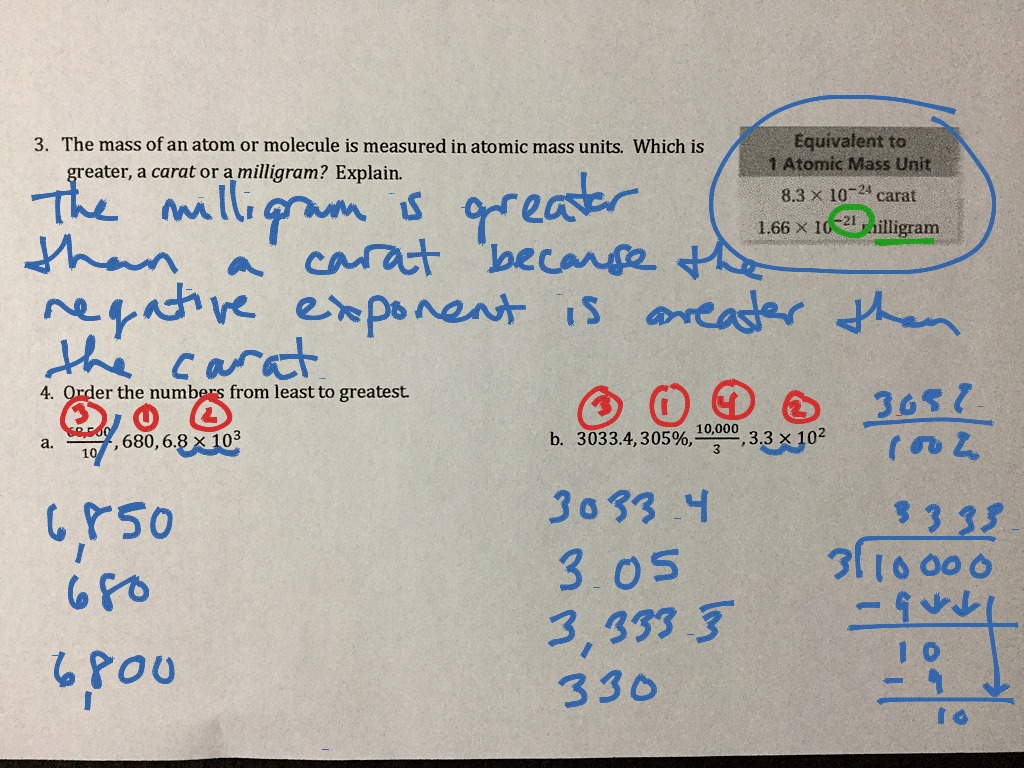 3. The mass of an atom or molecule is measured in atomic mass units. Which is
greater, a carat or a milligram? Explain.
Equivalent to
1 Atomic Mass Unit
8.3 × 10⁻²⁴ carat
1.66 × 10⁻²¹ milligram
The milligram is greater
than a carat because the
negative exponent is greater than
the carat
4. Order the numbers from least to greatest.
3 1 2
a. 68,500/10, 680, 6.8 × 10³
6,850
680
6,800
3 1 4 2
b. 3033.4, 305%, 10,000/3, 3.3 × 10²
3033.4
3.05
3,333.3̅
330
100
3333
3 10000
- 9
10
- 9
10